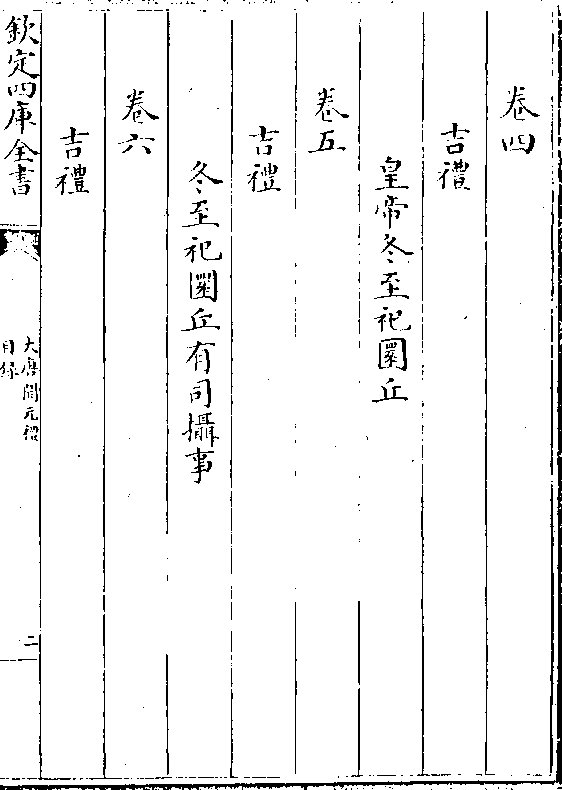 卷四
吉禮
皇帝冬至祀圜丘
卷五
吉禮
冬至祀圜丘有司攝事
卷六
吉禮
欽定四庫全書
大唐開元禮
目録
二